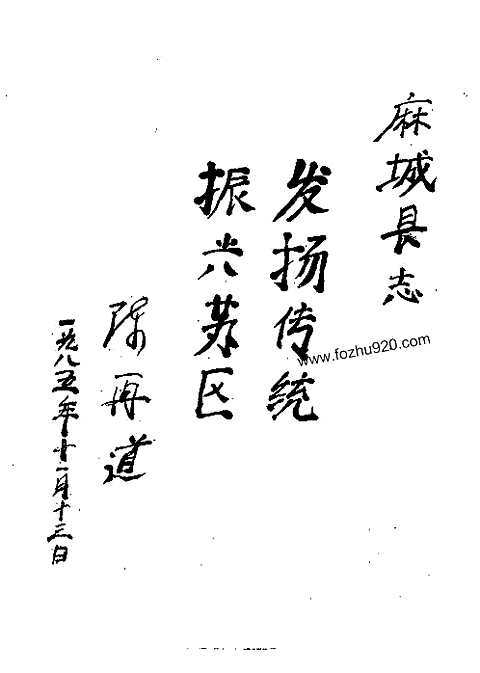 麻城县志
发扬传统
振兴苏区
陈再道
一九八五年十一月十三日
www.fozhu920.com